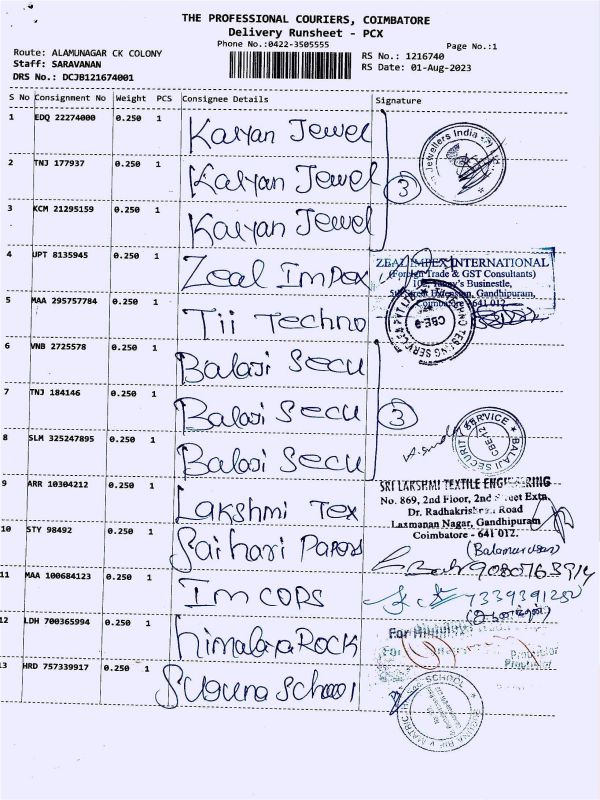 THE PROFESSIONAL COURIERS, COIMBATORE
Delivery Runsheet - PCX
Phone No.:0422-3505555
Page No.:1
Route: ALAMUNAGAR CK COLONY
RS No.: 1216740
Staff: SARAVANAN
RS Date: 01-Aug-2023
DRS No.: DCJB121674001
S No Consignment No Weight PCS Consignee Details Signature
1 EDQ 22274000 0.250 1 Kalyan Jewel
Jewellers India
2 TNJ 177937 0.250 1 Kalyan Jewel
3
3 KCM 21295159 0.250 1 Kalyan Jewel
4 UPT 8135945 0.250 1 Zeal Impex
ZEAL IMPEX INTERNATIONAL
(Foreign Trade & GST Consultants)
Businestle,
Gandhipuram,
Coimbatore 641 012.
5 MAA 295757784 0.250 1 Tii Techno
6 VNB 2725578 0.250 1 Balaji Secu
7 TNJ 184146 0.250 1 Balaji Secu
3
8 SLM 325247895 0.250 1 Balaji Secu
BALAJI SECURITY SERVICE
CBE-12
9 ARR 10304212 0.250 1 Lakshmi Tex
SRI LAKSHMI TEXTILE ENGINEERING
No. 869, 2nd Floor, 2nd Street Extn.
Dr. Radhakrishnan Road
Laxmanan Nagar, Gandhipuram
Coimbatore - 641 012.
10 STY 98492 0.250 1 Saihari Papers
11 MAA 100684123 0.250 1 Im cops
7339391252
12 LDH 700365994 0.250 1 himalaya Rock
For
Proprietor
13 HRD 757339917 0.250 1 Suguna School
SCHOOL